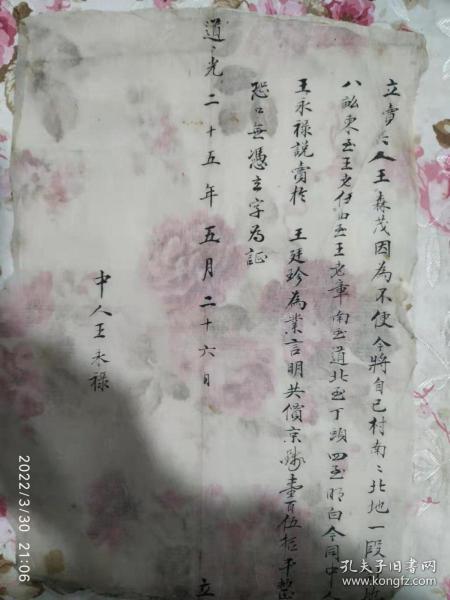 立賣地人王森茂因為不便今將自己村南南北地一段
八畝東至王老 西至王老章南至道北至丁頭四至明白今同中人
王永禄說賣於 王廷珍為業言明共價京錢壹百伍拾千整
恐口無憑立字為証
道光二十五年五月二十六日 立
中人王永禄
2022/3/30 21:06
孔夫子旧书网
book.kongfz.com